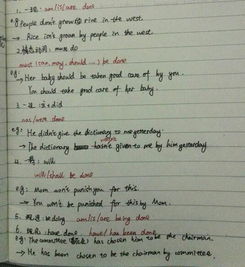 1. 一般: am/is/are done
eg: People don't grow rice in the west.
→ Rice isn't grown by people in the west.
2. 情态动词: must do
must (can, may, should ...) be done
eg:
→ Her baby should be taken good care of by you.
You should take good care of her baby.
3. 一过: did
was/were done
eg: He didn't give the dictionary to me yesterday.
→ The dictionary wasn't given to me by him yesterday
4. will
will/shall be done
eg: Mom won't punish you for this.
→ You won't be punished for this by Mom.
5. be doing am/is/are being done
6. have done have/has been done
eg: The committee has chosen him to be the chairman.
→ He has been chosen to be the chairman by committee.